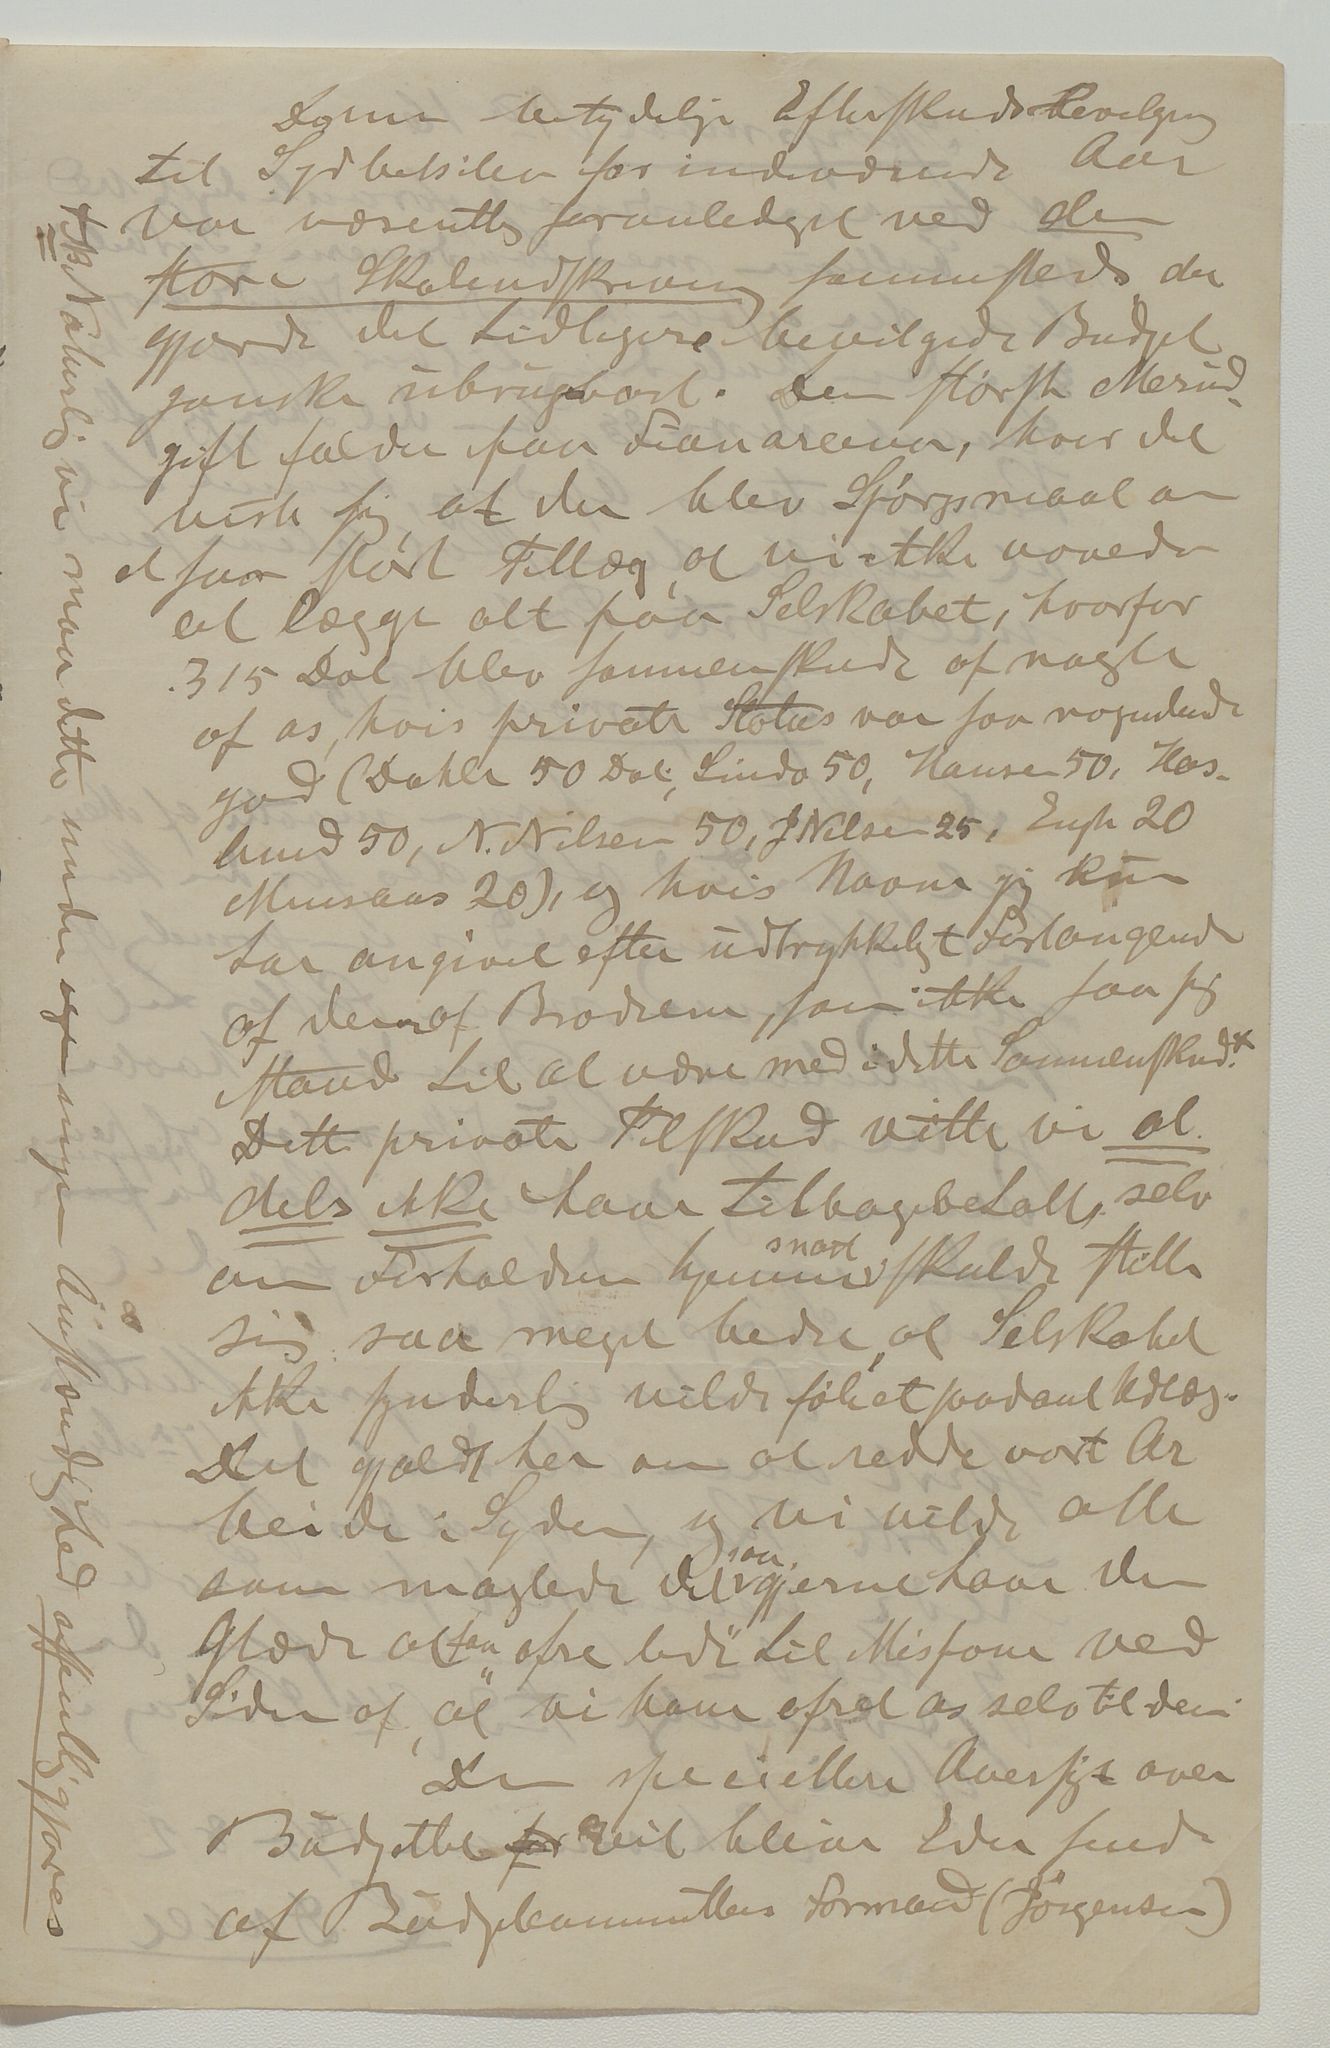 Denne betydelige Efterskuds-Bevilgning
til Sydbetsileo for indeværende Aar
var væsentlig foranlediget ved den
store Skoleudskrivning sammesteds der
gjorde det tidligere bevilgede Budget
ganske ubrugbart. Den største Merud-
gift falder paa Fianarana, hvor det
viste sig, at der blev Spørgsmaal om
et saa stort Tillæg, at vi ikke vovede
at lægge alt paa Selskabet, hvorfor
315 Dol blev sammenskudt af nogle
af os, hvis private Status var saa nogenlunde
god (Dahle 50 Dol., Lindø 50, Hansen 50, Has-
lund 50, N. Nilsen 50, J Nilsen 25, Engh 20
Minsaas 20), og hvis Navne jeg kun
har angivet efter udtrykkeligt Forlangende
af dem af Brødrene, som ikke saa sig
Stand til at være med i dette Sammenskud.*
Dette private Tilskud vilde vi al-
deles ikke have tilbagebetalt, selv
om Forholdene hjemme snart skulde stille
sig saa meget bedre, at Selskabet
ikke synderlig vilde føle et saadant Udlæg.
Det gjældt her om at redde vort Ar
beide i Syden, og vi vilde alle
som magtede det saa gjerne have den
Glæde at faa ofre lidt til Missionen ved
Siden af, at vi have ofret os selv til den.
Den speciellere Oversigt over
Budgettet for vil blive Eder sendt
af Budgetkommitteens Formand (Jørgensen)
* NB. Naturlig vi maa dette under ingen Omstændighed offentliggjøres